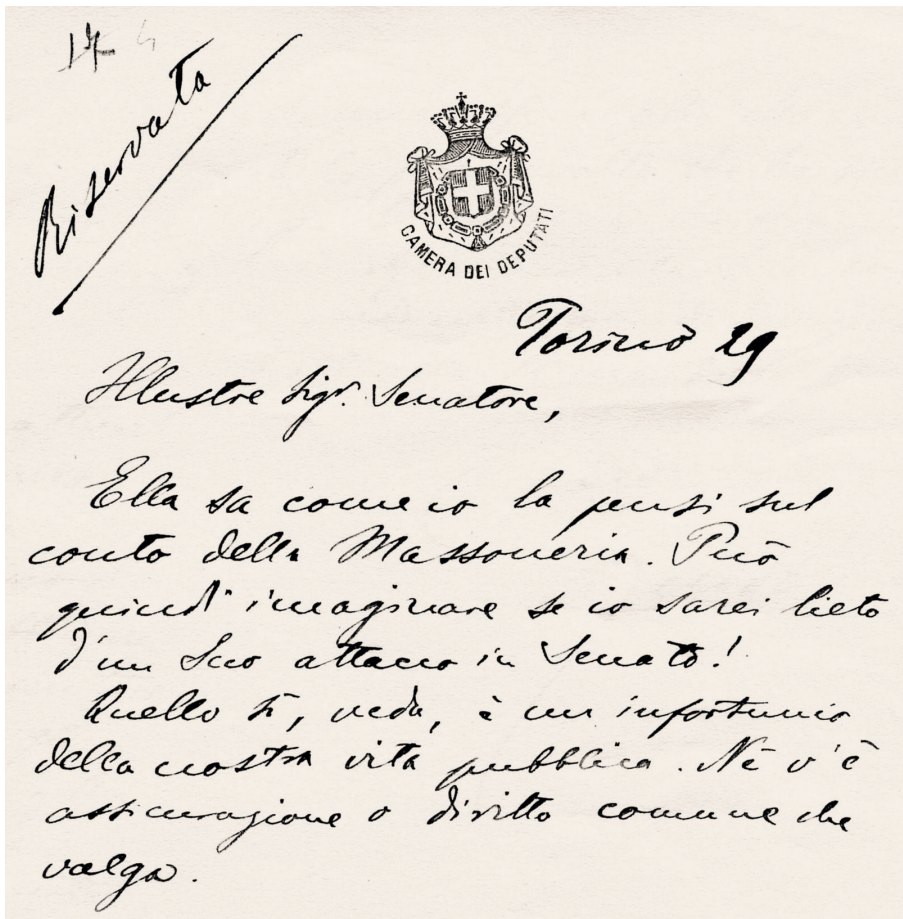 17
Riservata
CAMERA DEI DEPUTATI
Torino 29
Illustre Sigr. Senatore,
Ella sa come io la pensi sul
conto della Massoneria. Può
quindi imaginare se io sarei lieto
d'un Suo attacco in Senato!
Quello sì, veda, è un infortunio
della nostra vita pubblica. Nè v'è
assicurazione o diritto comune che
valga.